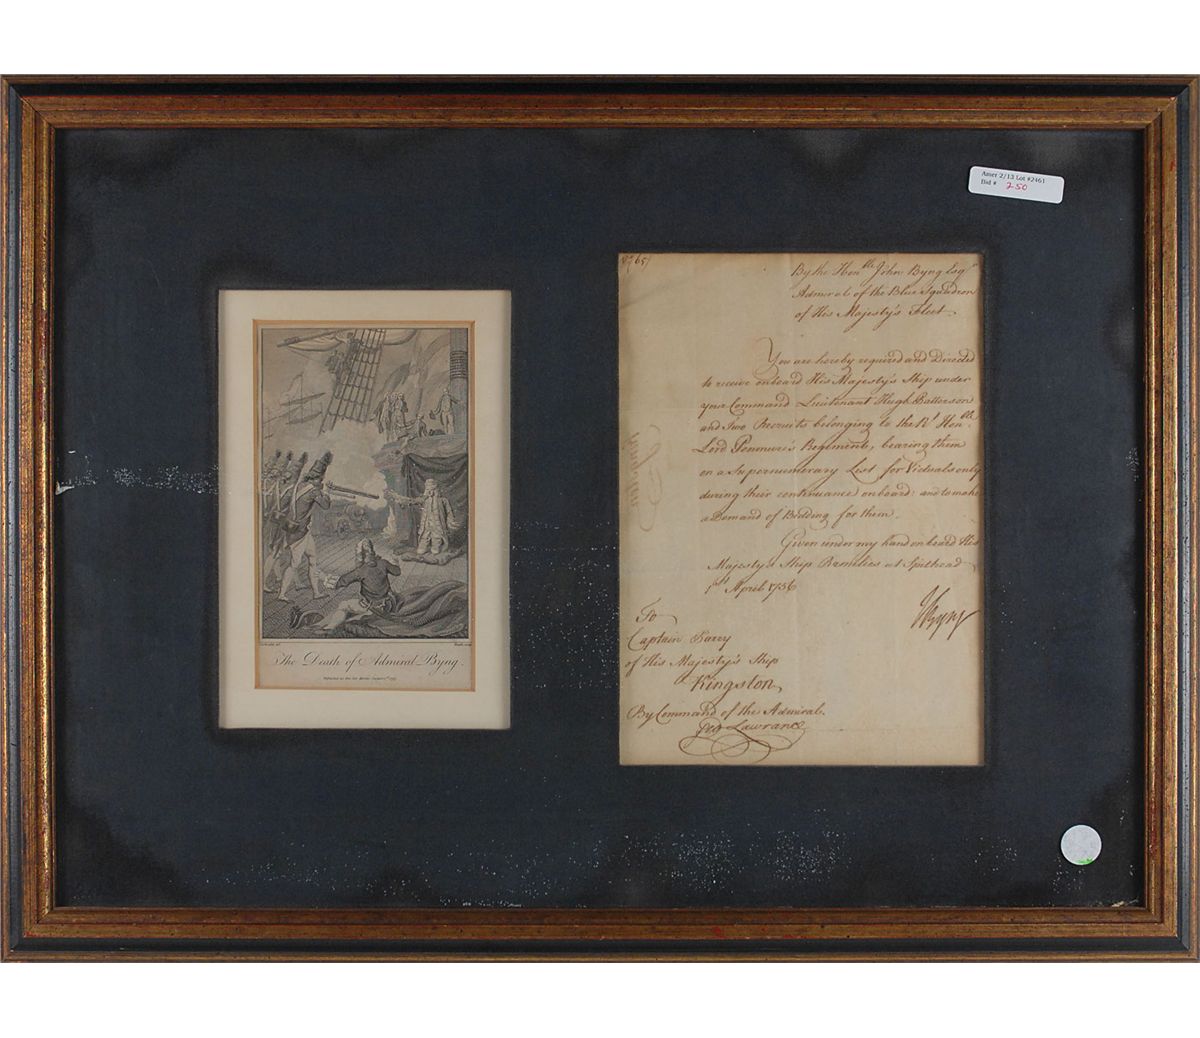 Amer 2/13 Lot #2461
Bid # 250
The Death of Admiral Byng.
By the Honble John Byng Esqr
Admiral of the Blue Squadron
of His Majesty's Fleet.
You are hereby required and Directed
to receive onboard His Majesty's Ship under
your Command Lieutenant Hugh Batterson
and Two Recruits belonging to the Rt Honble
Lord Panmure's Regiment, bearing them
on a Supernumerary List for Victuals only
during their continuance onboard: and to make
a Demand of Bedding for them.
Given under my hand onboard His
Majesty's Ship Ramilies at Spithead
1st April 1756
J Byng
To
Captain Parry
of His Majesty's Ship
Kingston
By Command of the Admiral.
Geo Lawrance
Kingston